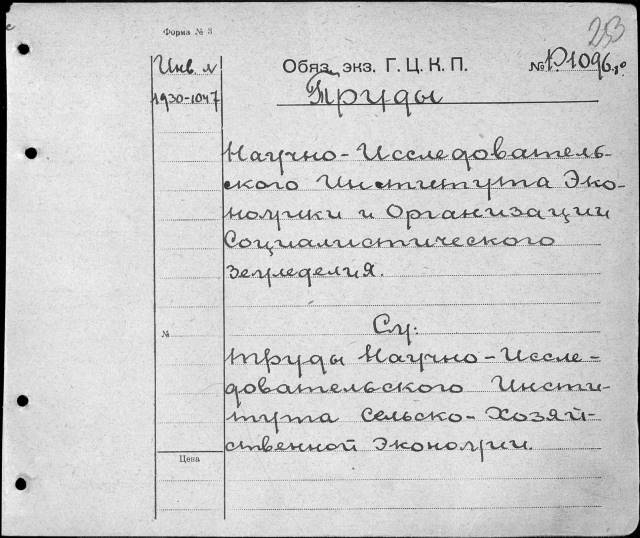 253
Форма № 3
Инв. №
1930-1047
Обяз. экз. Г. Ц. К. П.
№ Р1096
Труды
Научно-Исследователь-
ского Института Эко-
номики и Организации
Социалистического
Земледелия.
См:
Труды Научно-Иссле-
довательского Инсти-
тута Сельско-Хозяй-
ственной Экономии.
№
Цена